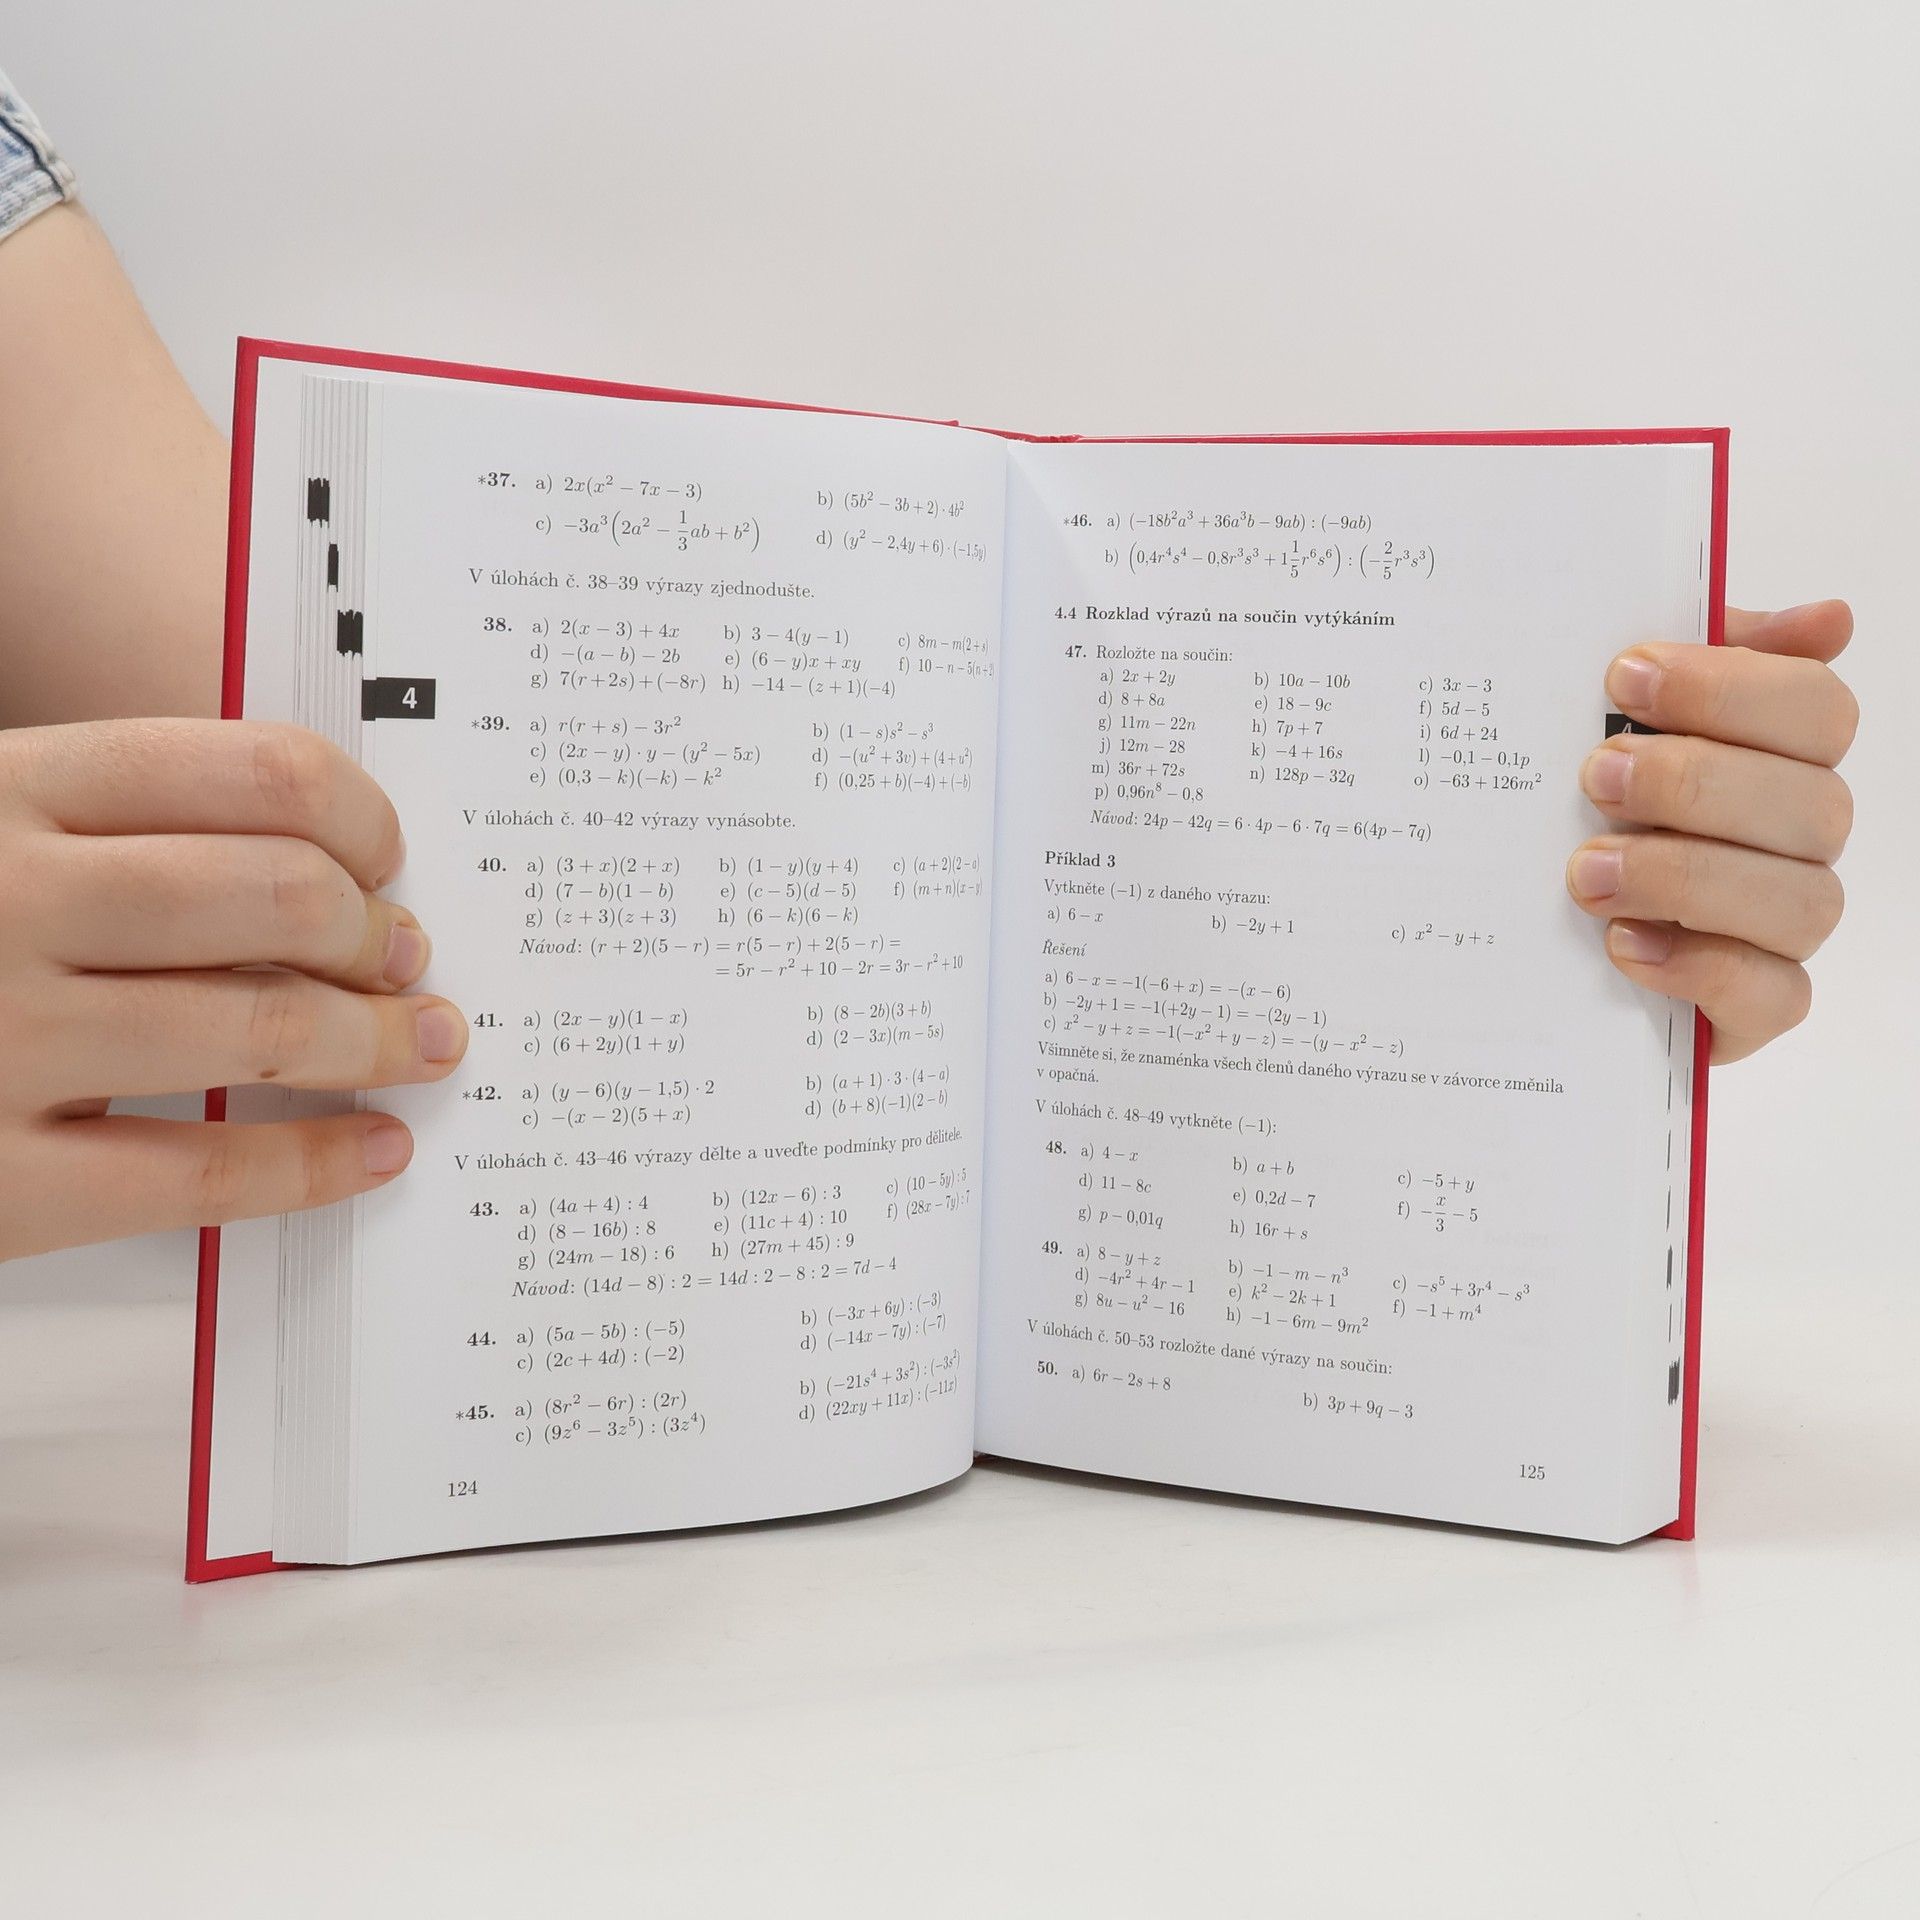 *37. a) 2x(x² − 7x − 3) b) (5b² − 3b + 2) · 4b²
c) −3a³(2a² − 1/3ab + b²) d) (y² − 2,4y + 6) · (−1,5y)
V úlohách č. 38–39 výrazy zjednodušte.
38. a) 2(x − 3) + 4x b) 3 − 4(y − 1) c) 8m − m(2 + s)
d) −(a − b) − 2b e) (6 − y)x + xy f) 10 − n − 5(n + 2)
g) 7(r + 2s) + (−8r) h) −14 − (z + 1)(−4)
*39. a) r(r + s) − 3r² b) (1 − s)s² − s³
c) (2x − y) · y − (y² − 5x) d) −(u² + 3v) + (4 + u²)
e) (0,3 − k)(−k) − k² f) (0,25 + b)(−4) + (−b)
V úlohách č. 40–42 výrazy vynásobte.
40. a) (3 + x)(2 + x) b) (1 − y)(y + 4) c) (a + 2)(2 − a)
d) (7 − b)(1 − b) e) (c − 5)(d − 5) f) (m + n)(x − y)
g) (z + 3)(z + 3) h) (6 − k)(6 − k)
Návod: (r + 2)(5 − r) = r(5 − r) + 2(5 − r) =
= 5r − r² + 10 − 2r = 3r − r² + 10
41. a) (2x − y)(1 − x) b) (8 − 2b)(3 + b)
c) (6 + 2y)(1 + y) d) (2 − 3x)(m − 5s)
*42. a) (y − 6)(y − 1,5) · 2 b) (a + 1) · 3 · (4 − a)
c) −(x − 2)(5 + x) d) (b + 8)(−1)(2 − b)
V úlohách č. 43–46 výrazy dělte a uveďte podmínky pro dělitele.
43. a) (4a + 4) : 4 b) (12x − 6) : 3 c) (10 − 5y) : 5
d) (8 − 16b) : 8 e) (11c + 4) : 10 f) (28x − 7y) : 7
g) (24m − 18) : 6 h) (27m + 45) : 9
Návod: (14d − 8) : 2 = 14d : 2 − 8 : 2 = 7d − 4
44. a) (5a − 5b) : (−5) b) (−3x + 6y) : (−3)
c) (2c + 4d) : (−2) d) (−14x − 7y) : (−7)
*45. a) (8r² − 6r) : (2r) b) (−21s⁴ + 3s²) : (−3s²)
c) (9z⁶ − 3z⁵) : (3z⁴) d) (22xy + 11x) : (−11x)
124
4
*46. a) (−18b²a³ + 36a³b − 9ab) : (−9ab)
b) (0,4r⁴s⁴ − 0,8r³s³ + 1 1/5r⁶s⁶) : (−2/5r³s³)
4.4 Rozklad výrazů na součin vytýkáním
47. Rozložte na součin:
a) 2x + 2y b) 10a − 10b c) 3x − 3
d) 8 + 8a e) 18 − 9c f) 5d − 5
g) 11m − 22n h) 7p + 7 i) 6d + 24
j) 12m − 28 k) −4 + 16s l) −0,1 − 0,1p
m) 36r + 72s n) 128p − 32q o) −63 + 126m²
p) 0,96n⁸ − 0,8
Návod: 24p − 42q = 6 · 4p − 6 · 7q = 6(4p − 7q)
Příklad 3
Vytkněte (−1) z daného výrazu:
a) 6 − x b) −2y + 1 c) x² − y + z
Řešení
a) 6 − x = −1(−6 + x) = −(x − 6)
b) −2y + 1 = −1(+2y − 1) = −(2y − 1)
c) x² − y + z = −1(−x² + y − z) = −(y − x² − z)
Všimněte si, že znaménka všech členů daného výrazu se v závorce změnila
v opačná.
V úlohách č. 48–49 vytkněte (−1):
48. a) 4 − x b) a + b c) −5 + y
d) 11 − 8c e) 0,2d − 7 f) −x/3 − 5
g) p − 0,01q h) 16r + s
49. a) 8 − y + z b) −1 − m − n³ c) −s⁵ + 3r⁴ − s³
d) −4r² + 4r − 1 e) k² − 2k + 1 f) −1 + m⁴
g) 8u − u² − 16 h) −1 − 6m − 9m²
V úlohách č. 50–53 rozložte dané výrazy na součin:
50. a) 6r − 2s + 8 b) 3p + 9q − 3
125